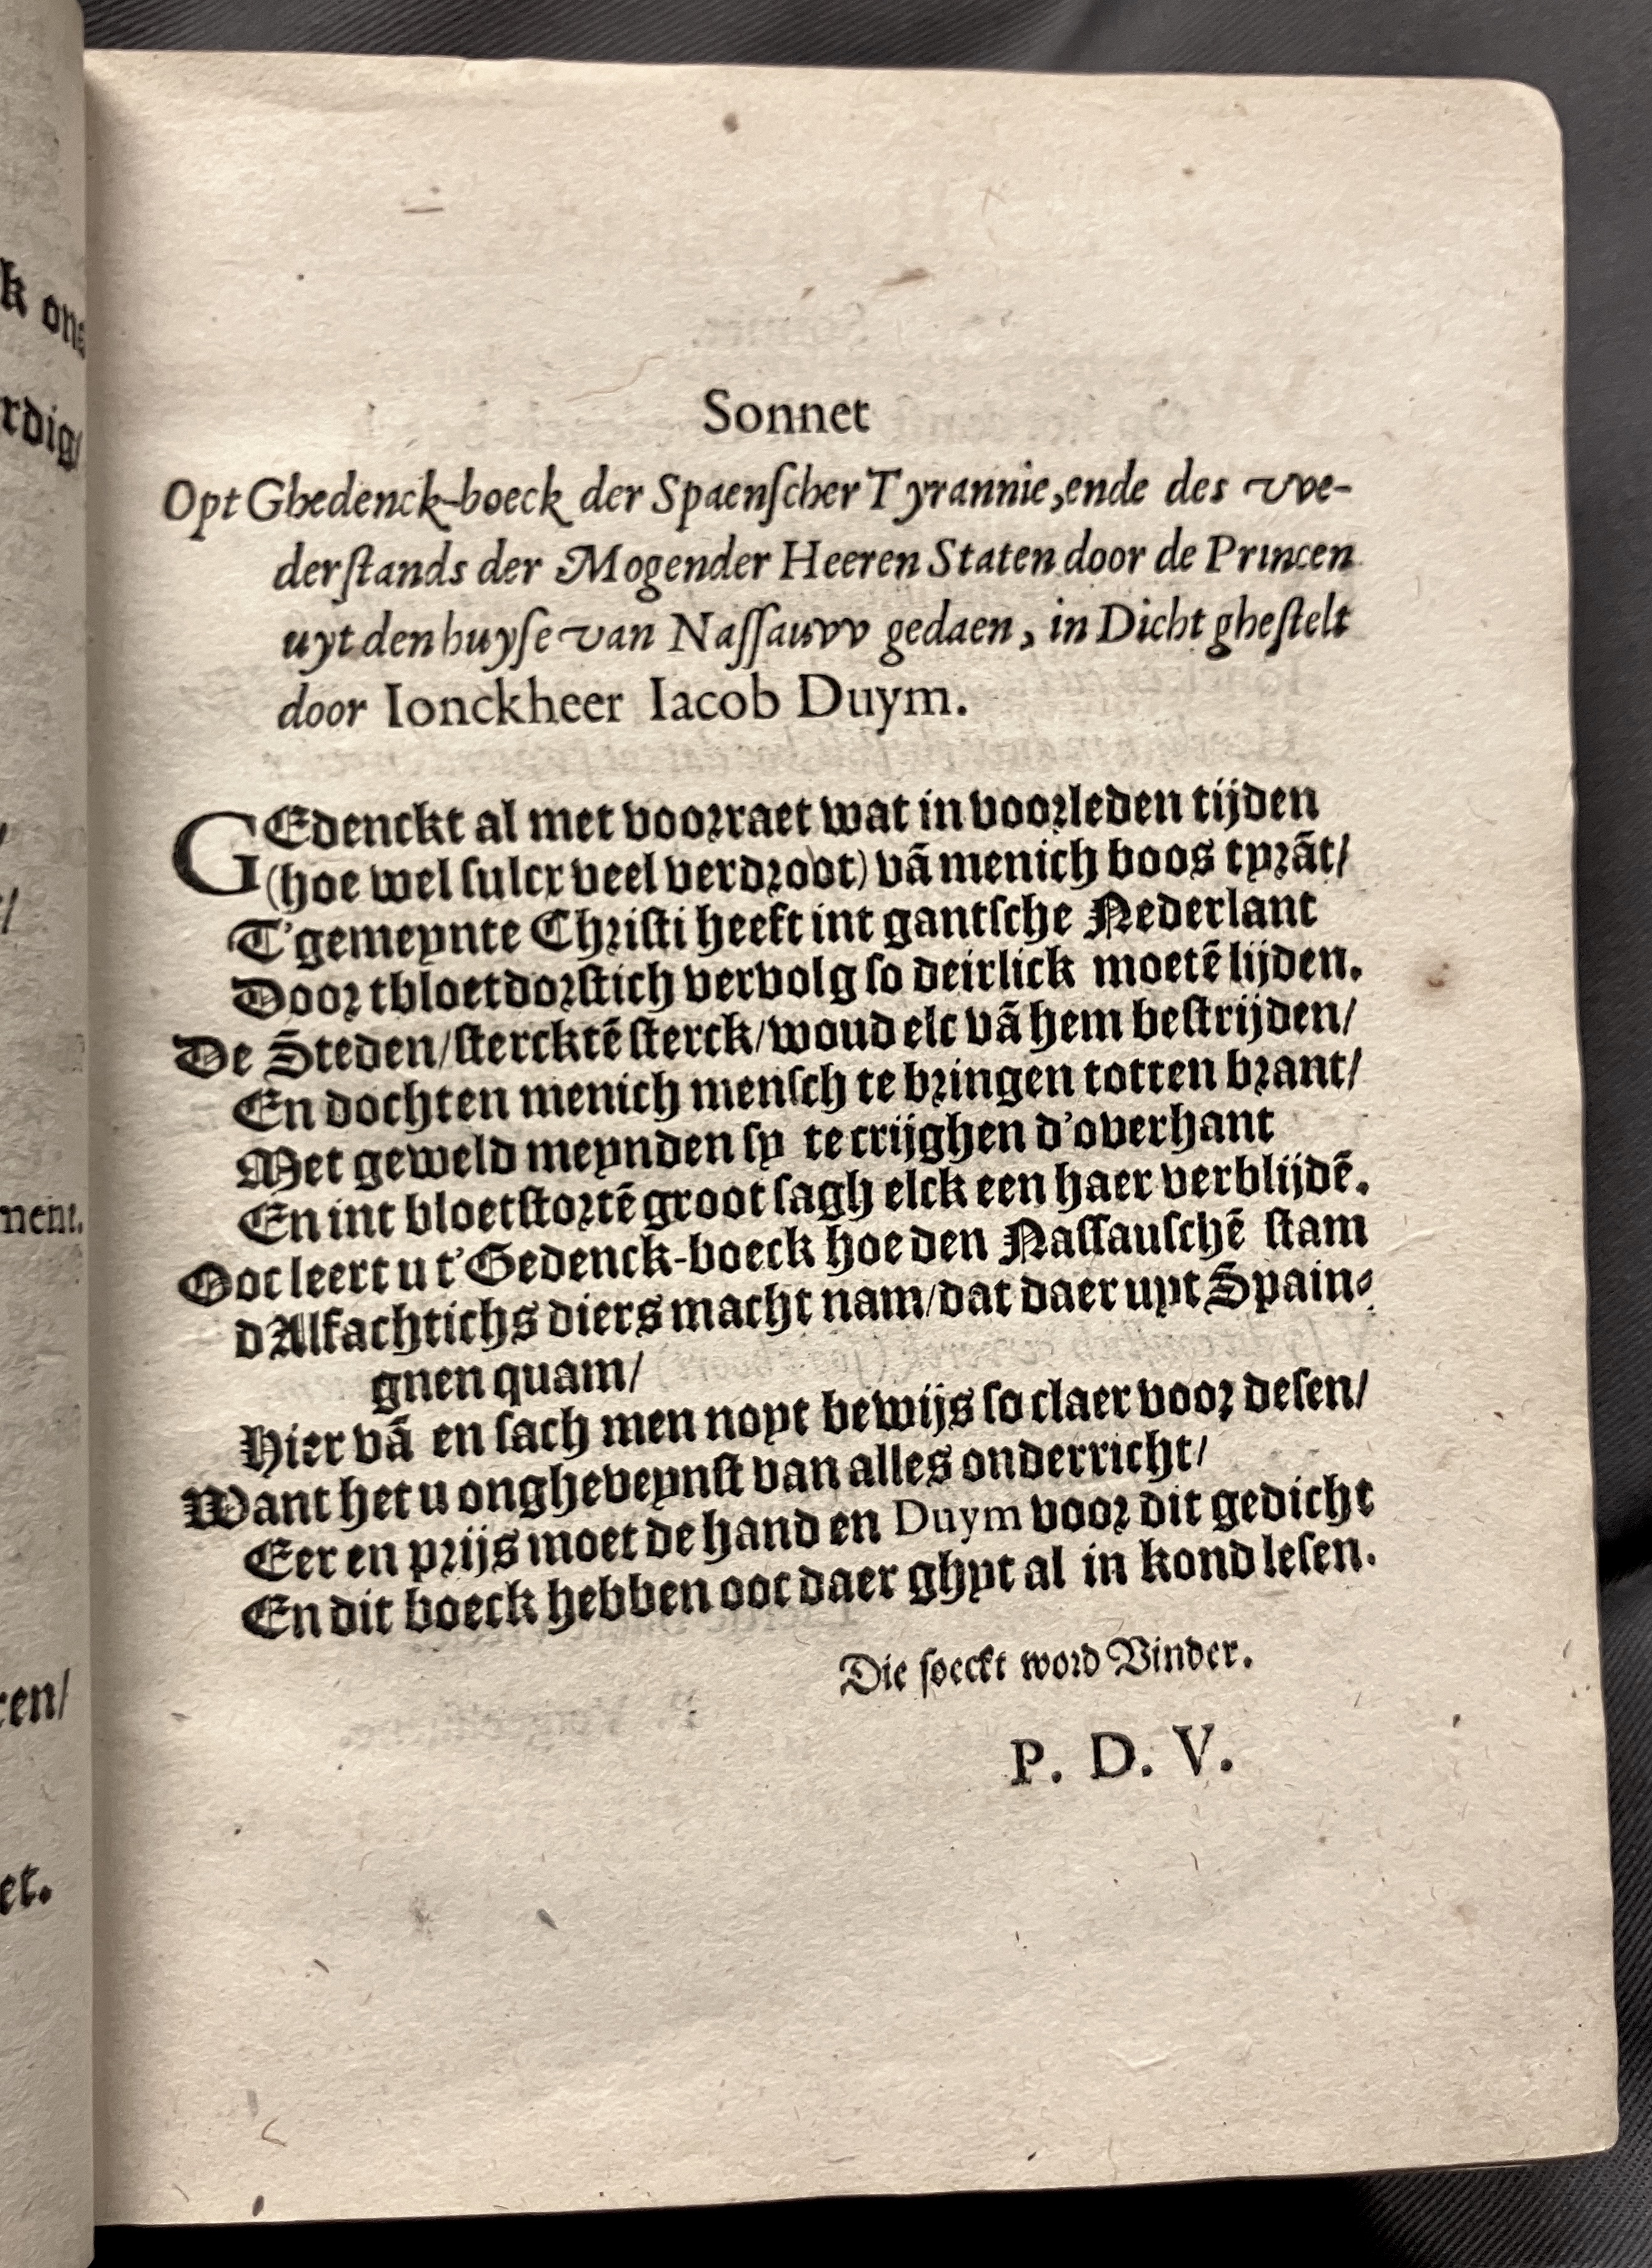 k ons
rdig/
ment.
ren/
et.
Sonnet
Opt Ghedenck-boeck der Spaenſcher Tyrannie, ende des vve-
derſtands der Mogender Heeren Staten door de Princen
uyt den huyſe van Naſſauvv gedaen, in Dicht gheſtelt
door Ionckheer Iacob Duym.
GEdenckt al met voorraet wat in voorleden tijden
(hoe wel ſulcx veel verdroot) vā menich boos tyrāt/
T'gemeynte Chriſti heeft int gantſche Nederlant
Door tbloetdorſtich vervolg ſo deirlick moetē lijden.
De Steden/ſtercktē ſterck/woud elc vā hem beſtrijden/
En dochten menich menſch te bringen totten brant/
Met geweld meynden ſy te crijghen d'overhant
En int bloetſtortē groot ſagh elck een haer verblijdē.
Ooc leert u t'Gedenck-boeck hoe den Naſſauſchē ſtam
dAlfachtichs diers macht nam/dat daer uyt Spain-
gnen quam/
Hier vā en ſach men noyt bewijs ſo claer voor deſen/
Want het u ongheveynſt van alles onderricht/
Eer en prijs moet de hand en Duym voor dit gedicht
En dit boeck hebben ooc daer ghyt al in kond leſen.
Die ſoeckt word Vinder.
P. D. V.